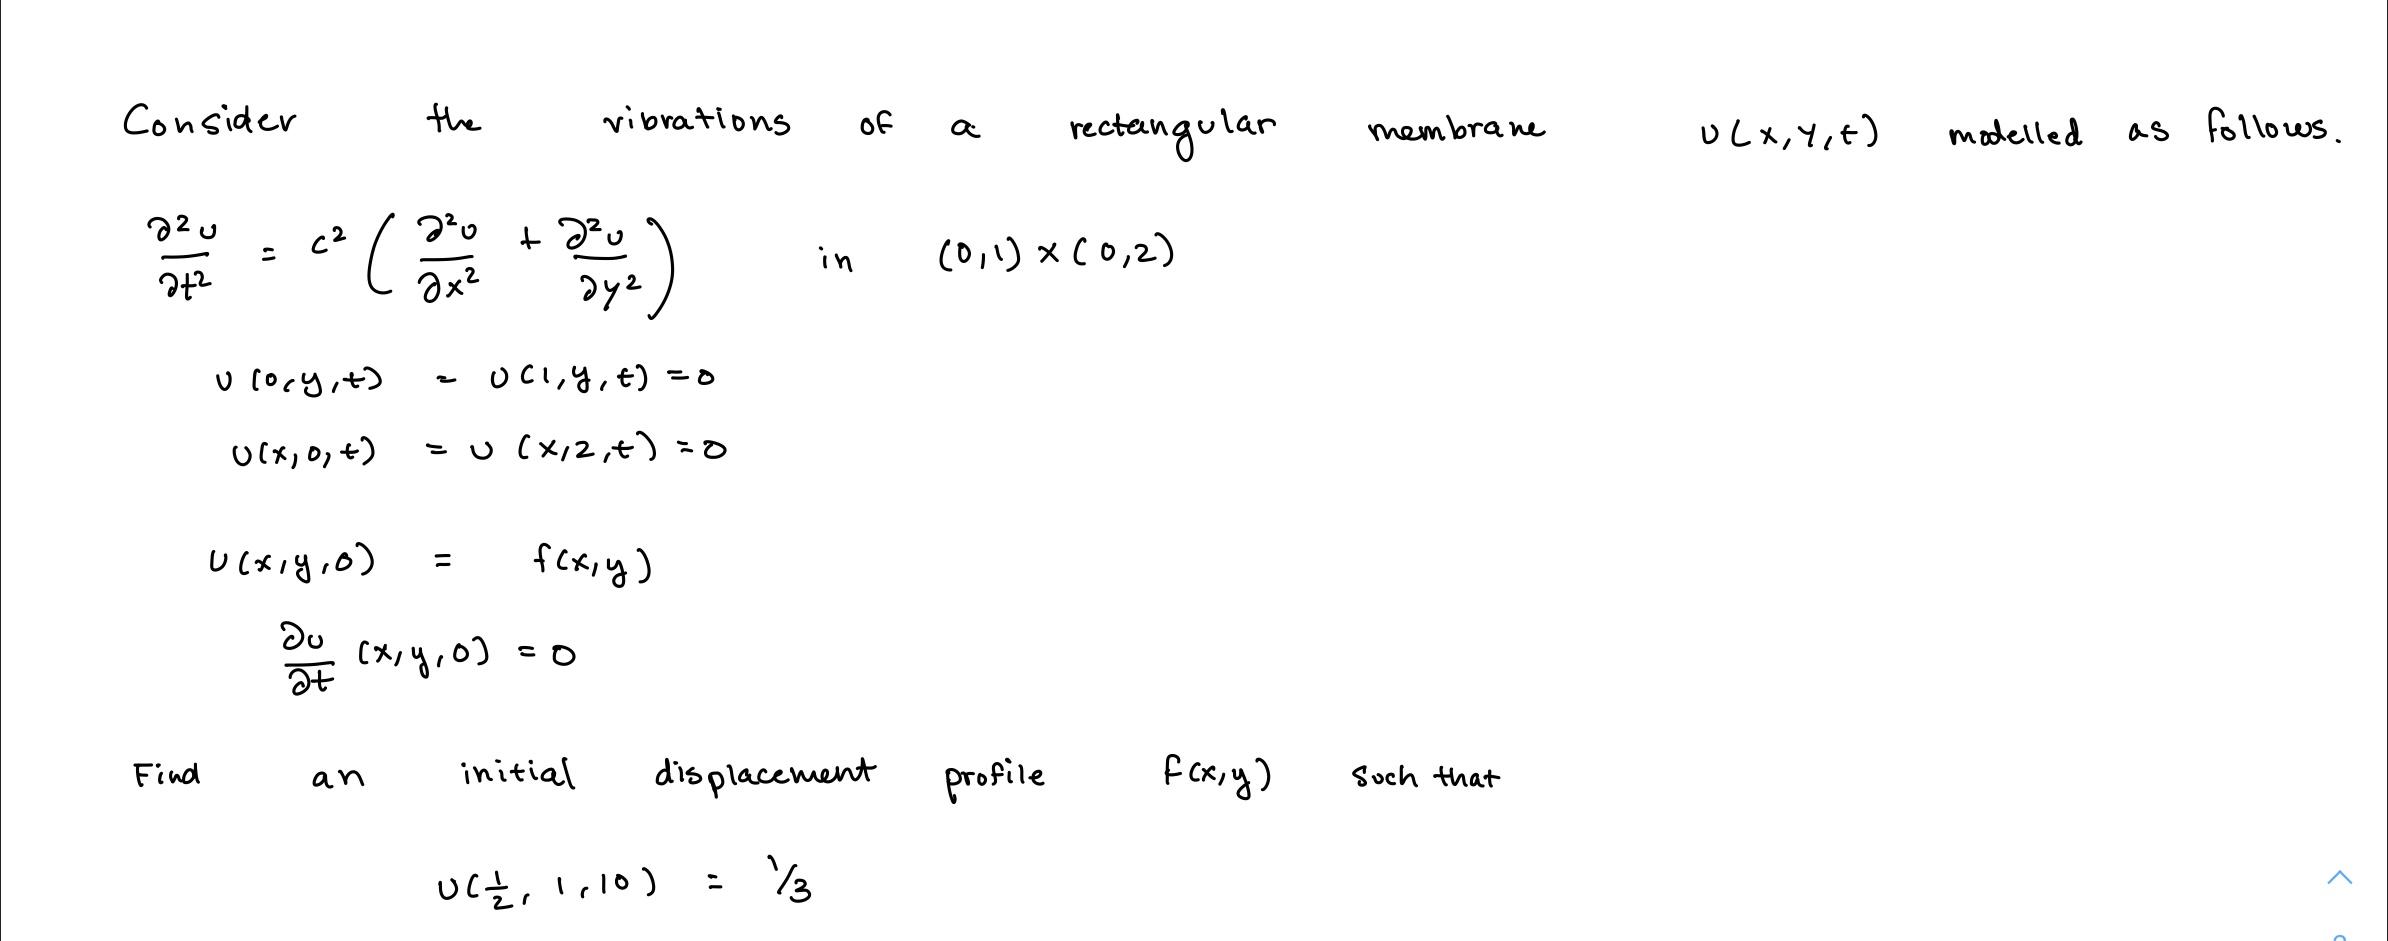 Consider the vibrations of a rectangular membrane u(x,y,t) modelled as follows.
∂²u/∂t² = c² ( ∂²u/∂x² + ∂²u/∂y² ) in (0,1) × (0,2)
u(0,y,t) = u(1,y,t) = 0
u(x,0,t) = u(x,2,t) = 0
u(x,y,0) = f(x,y)
∂u/∂t (x,y,0) = 0
Find an initial displacement profile f(x,y) such that
u(1/2, 1, 10) = 1/3